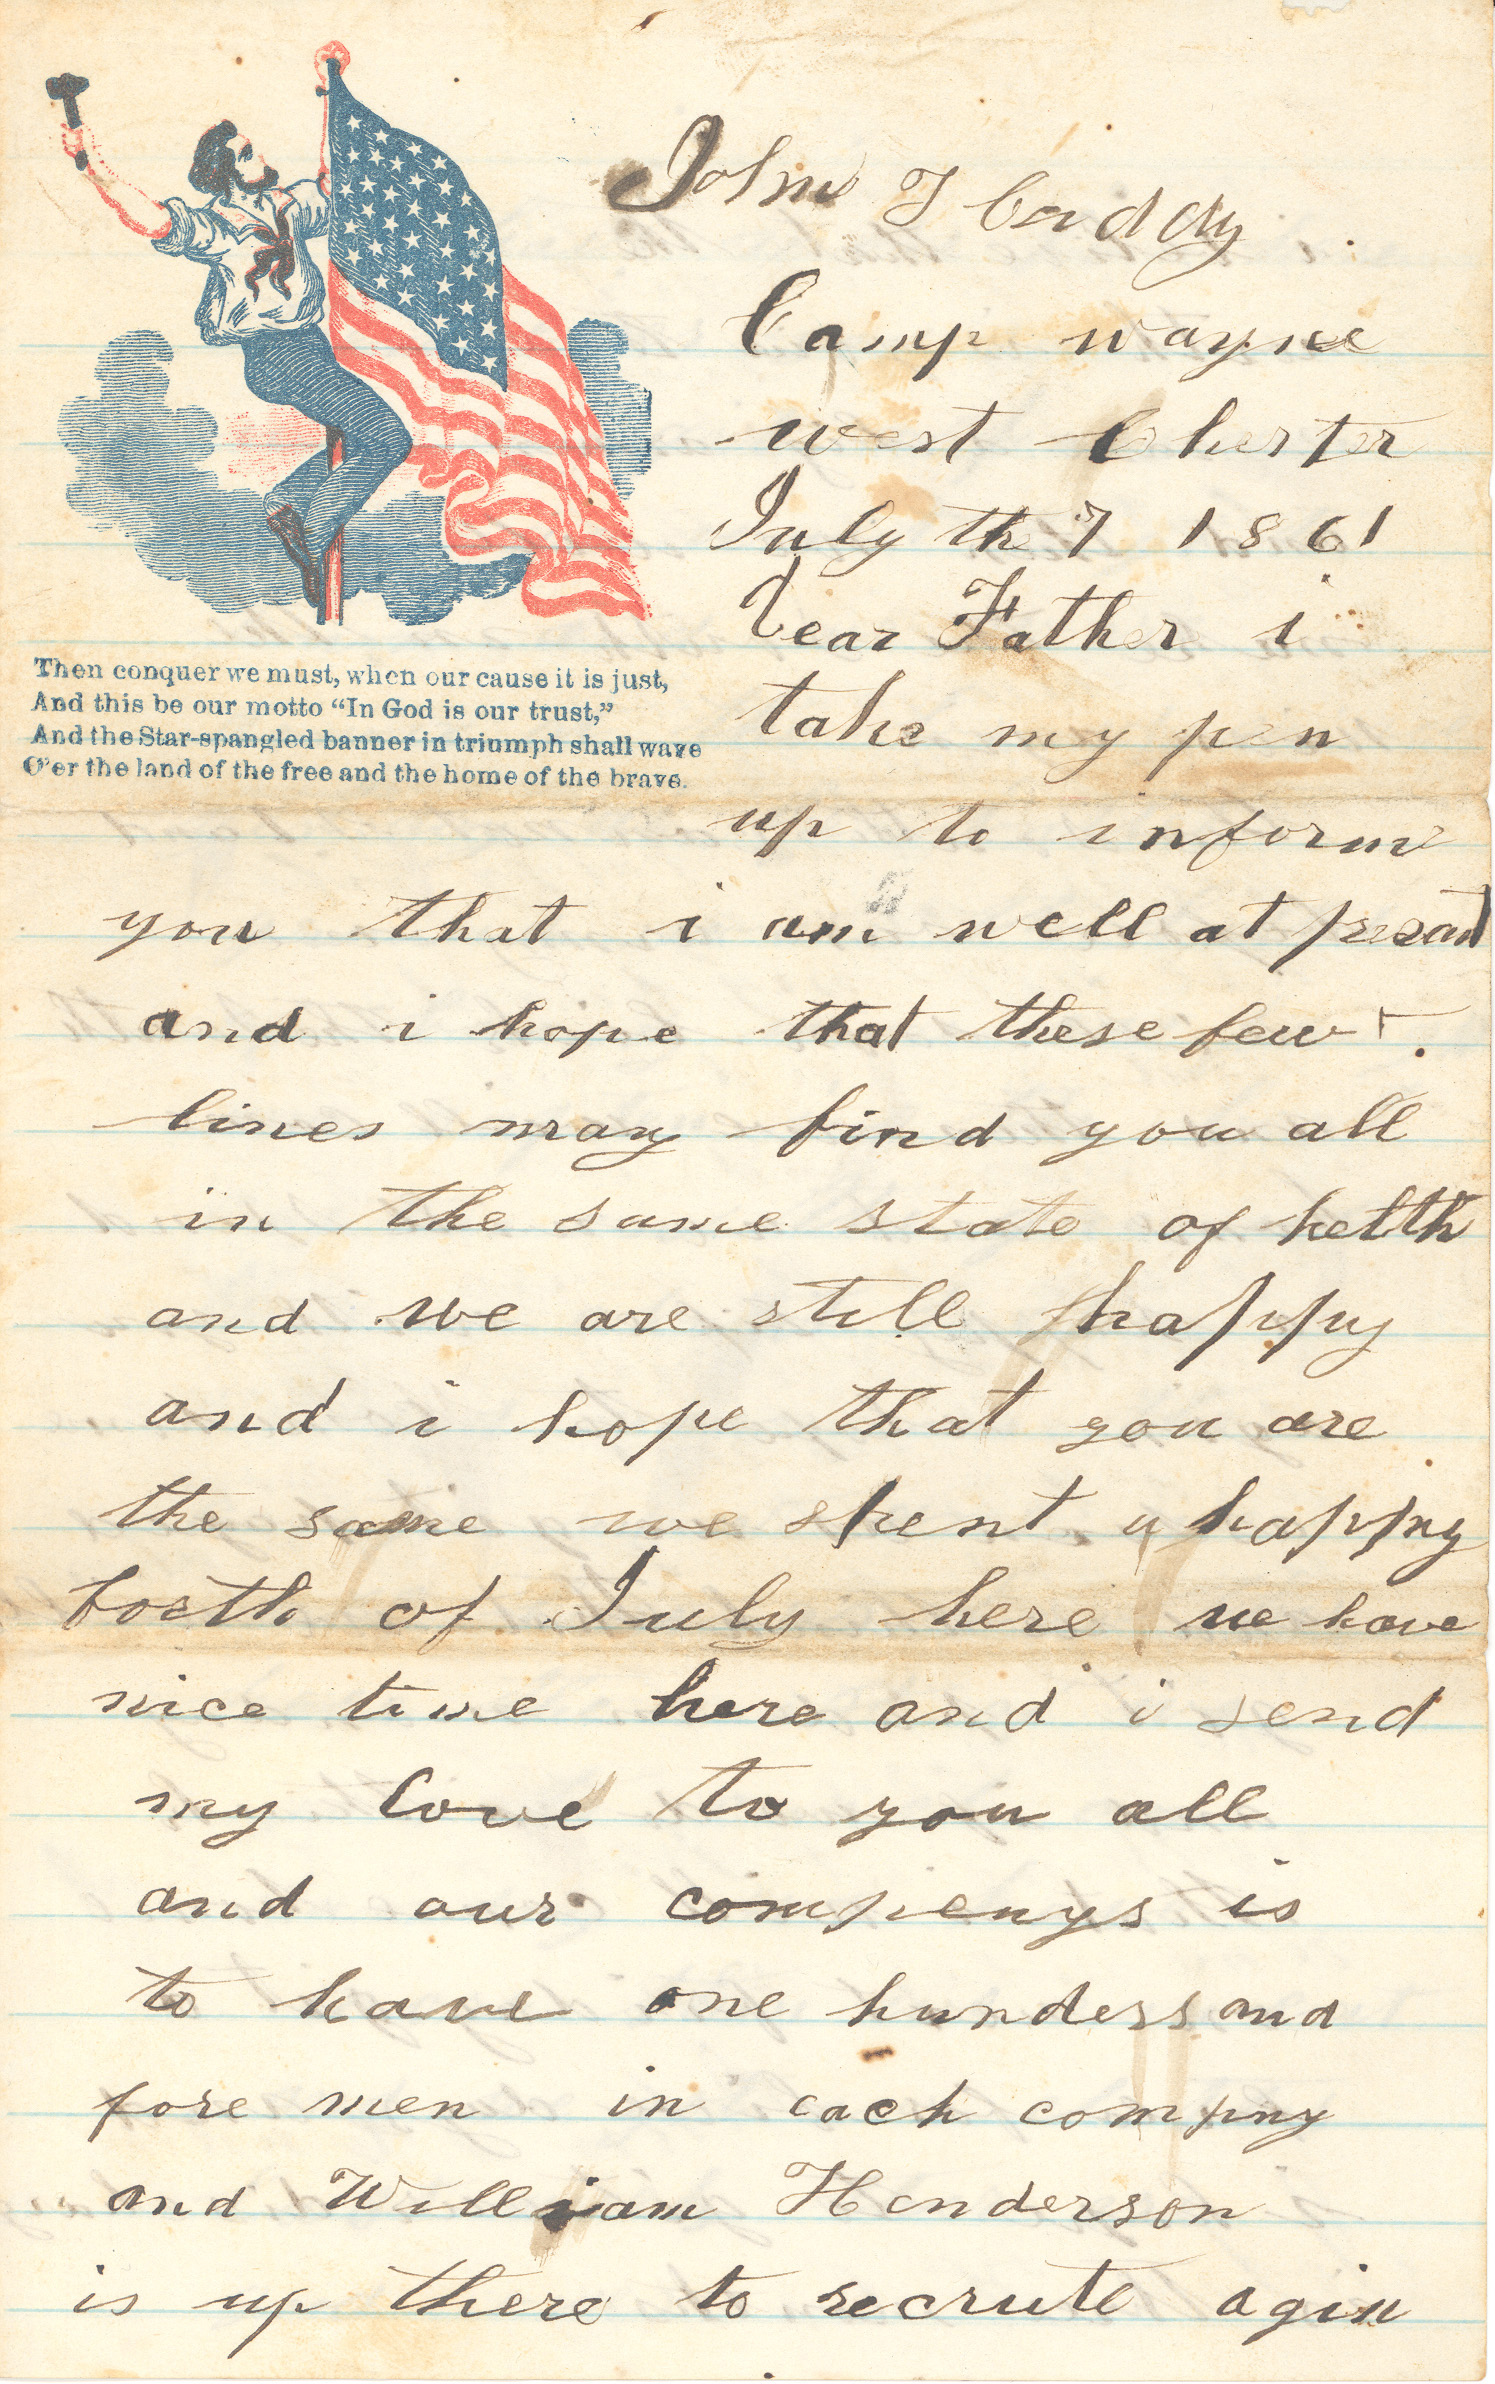 John T Caddy
Camp wayne
west Chester
July th 7 1861
Dear Father i
take my pen
up to inform
Then conquer we must, when our cause it is just,
And this be our motto “In God is our trust,”
And the Star-spangled banner in triumph shall wave
O’er the land of the free and the home of the brave.
you that i am well at
and i hope that these few
lines may find you all
in the same state of helth
and we are still happy
and i hope that you are
the same we spent a happy
of July here we have
nice time here and i send
my love to you all
and our compenys is
to have one hunders and
fore men in each compny
and William Henderson
is up there to recrute agin